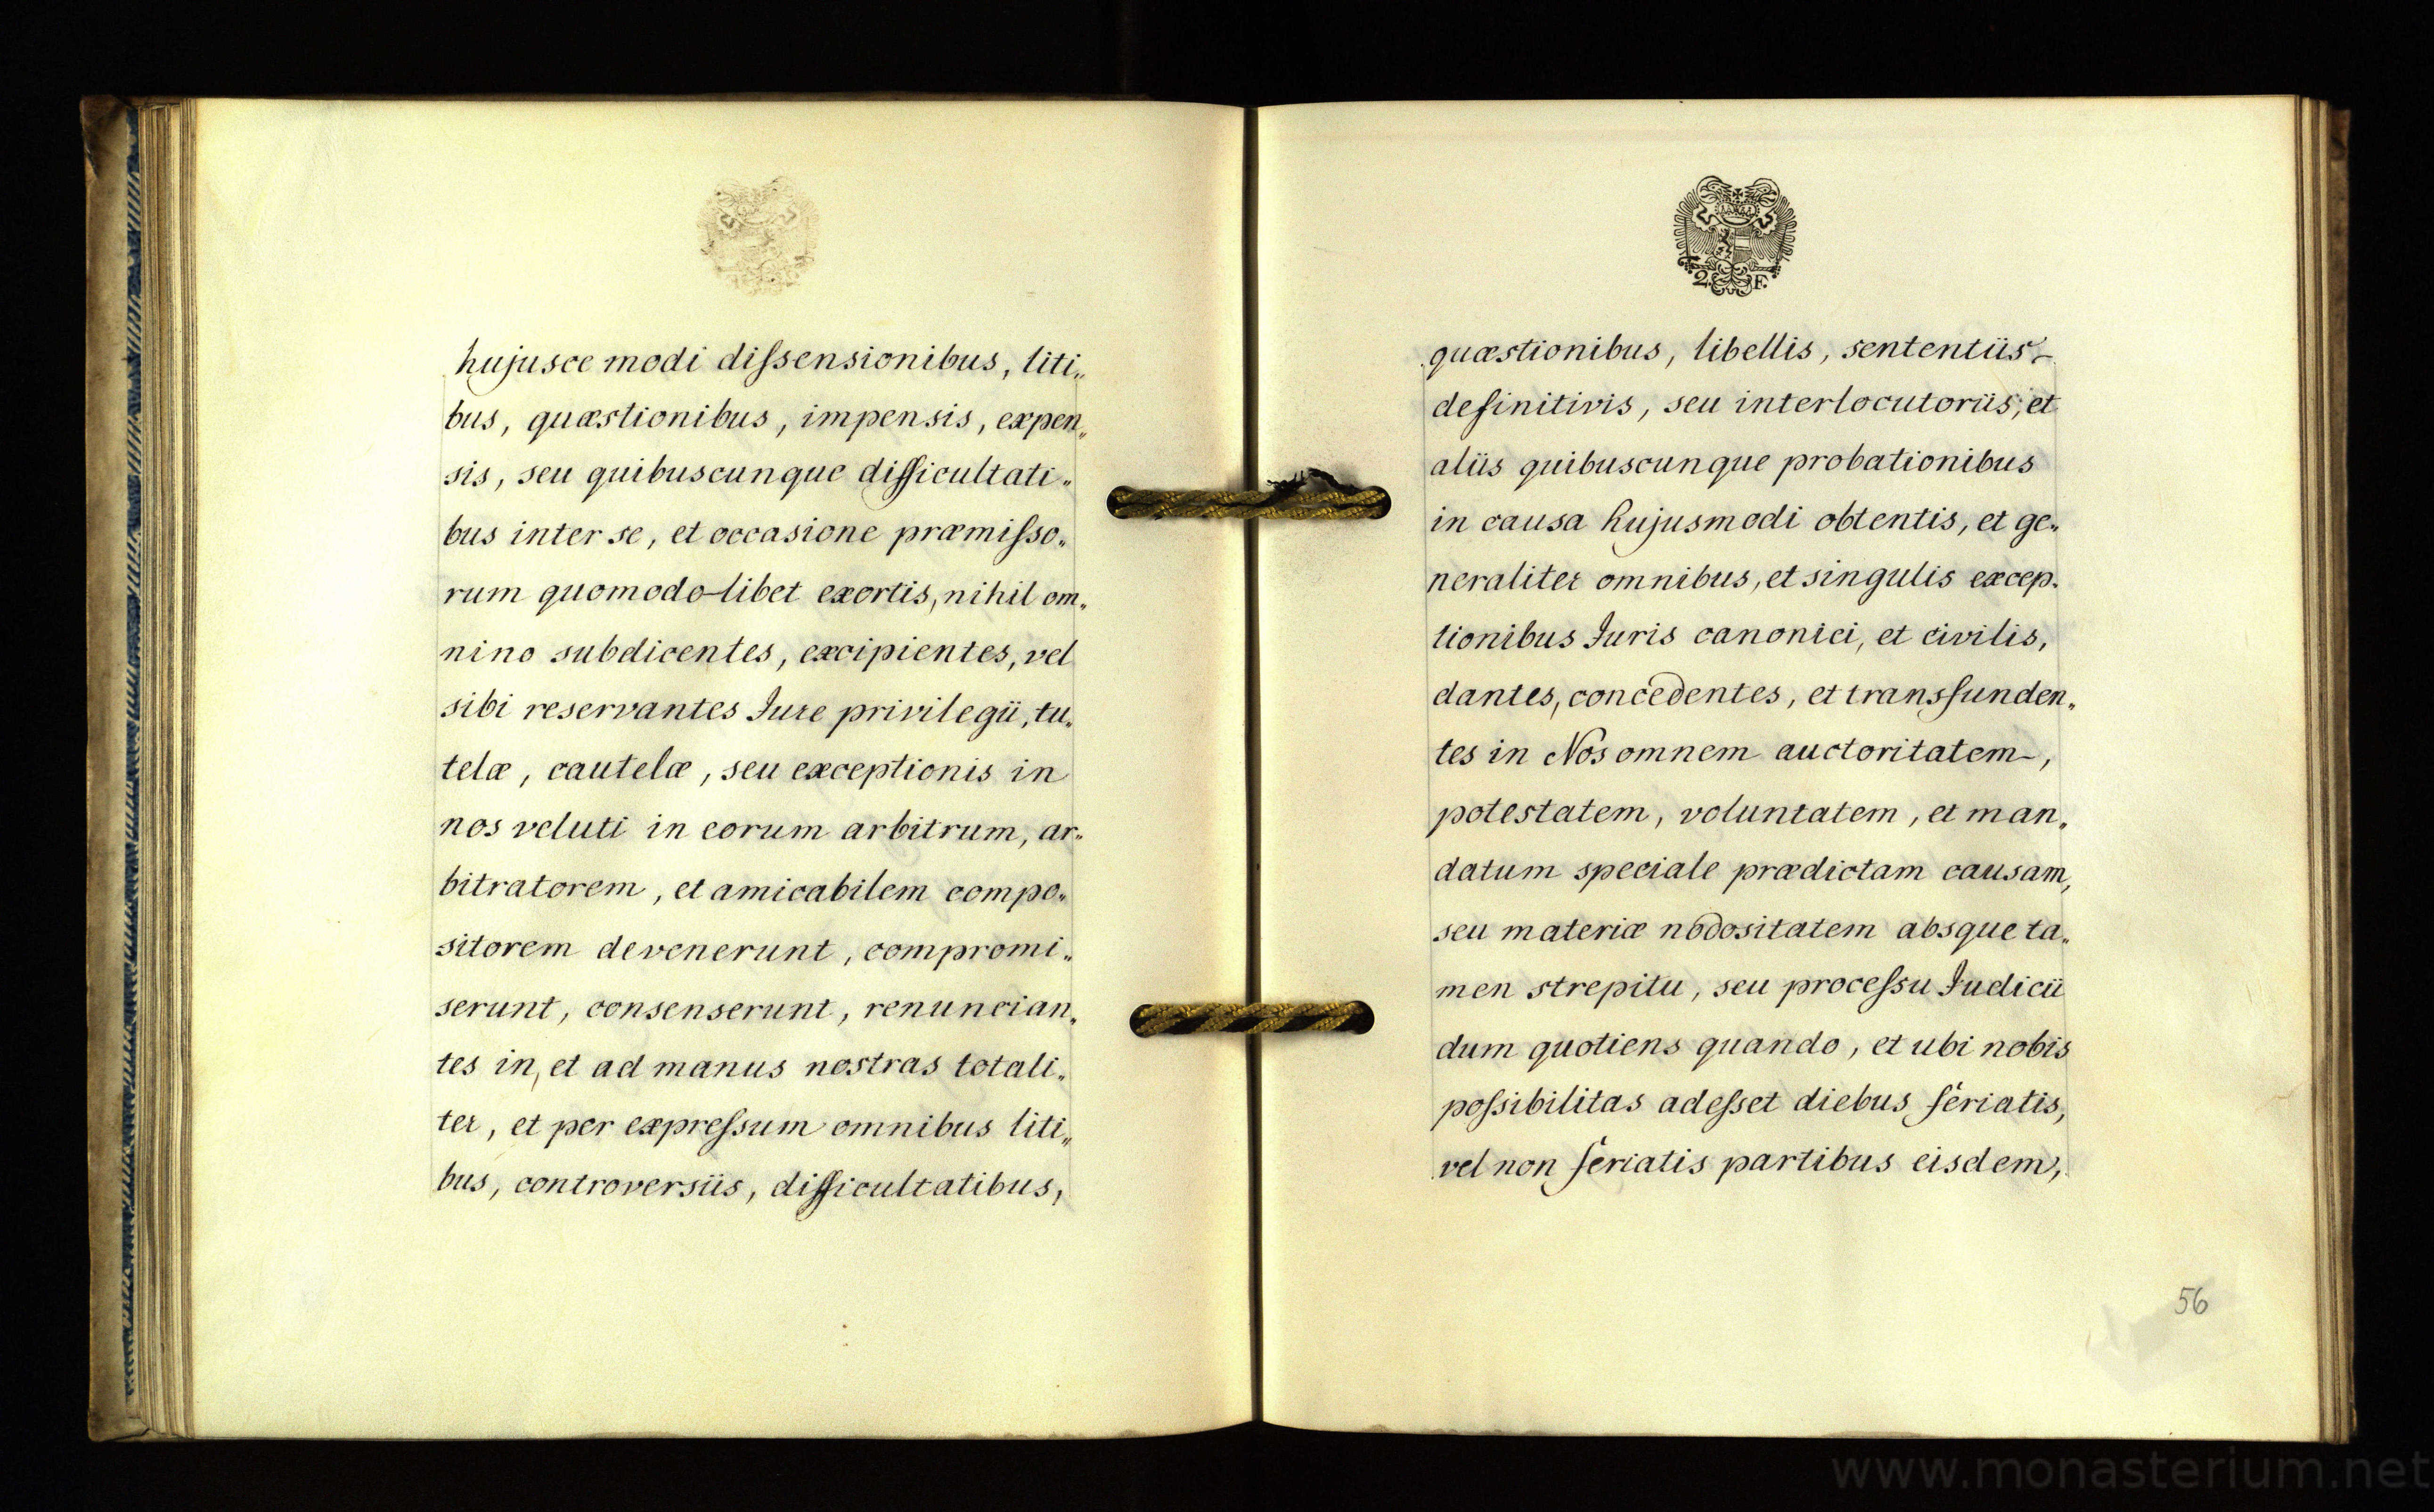 hujusce modi diſsensionibus, liti„
bus, quæstionibus, impensis, expen„
sis, seu quibuscunque difficultati„
bus inter se, et occasione præmiſso„
rum quomodo-libet exortis, nihil om„
nino subdicentes, excipientes, vel
sibi reservantes Jure privilegii, tu„
telæ, cautelæ, seu exceptionis in
nos veluti in eorum arbitrum, ar„
bitratorem, et amicabilem compo„
sitorem devenerunt, compromi„
serunt, consenserunt, renuncian„
tes in, et ad manus nostras totali„
ter, et per expreſsum omnibus liti„
bus, controversiis, difficultatibus,
2. F.
quæstionibus, libellis, sententiis
definitivis, seu interlocutoriis, et
aliis quibuscunque probationibus
in causa hujusmodi obtentis, et ge„
neraliter omnibus, et singulis excep„
tionibus Juris canonici, et civilis,
dantes, concedentes, et transfunden„
tes in Nos omnem auctoritatem,
potestatem, voluntatem, et man„
datum speciale prædictam causam,
seu materiæ nodositatem absque ta„
men strepitu, seu proceſsu Judicii
dum quotiens quando, et ubi nobis
poſsibilitas adeſset diebus feriatis,
vel non feriatis partibus eisdem,
56
www.monasterium.net